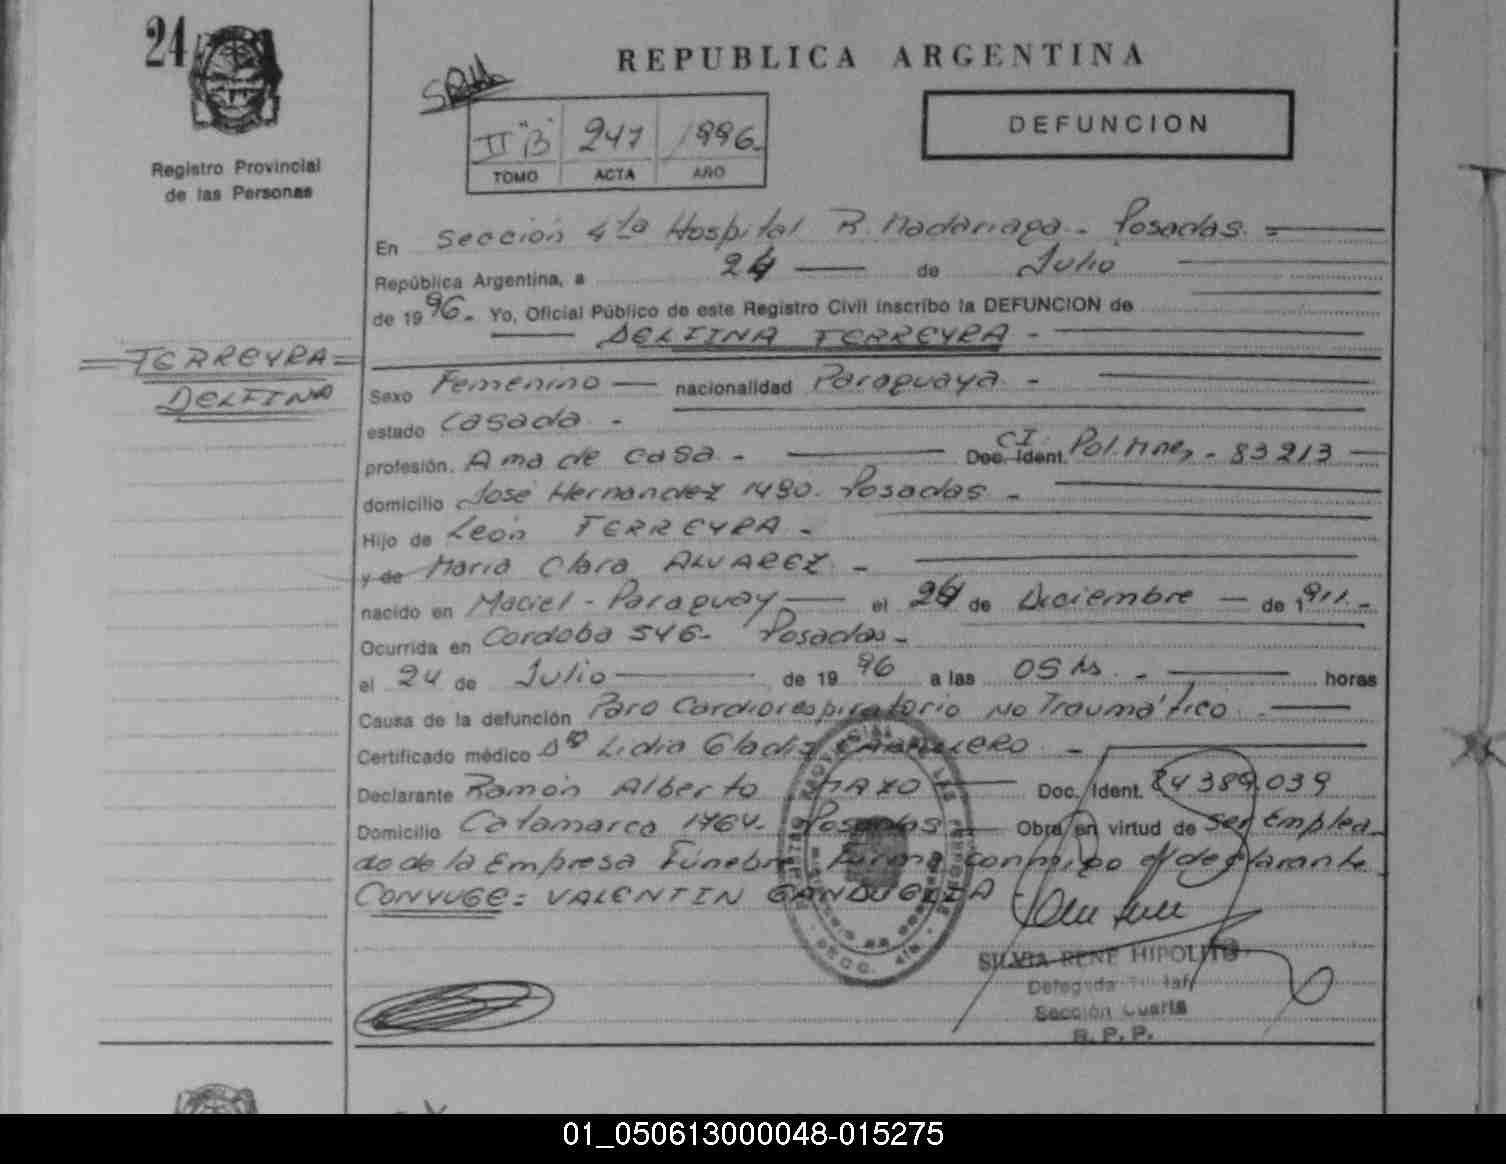 24
REPUBLICA ARGENTINA
II "B" 247 1996.
TOMO ACTA AÑO
DEFUNCION
Registro Provincial
de las Personas
En Sección 4ta Hospital R. Madariaga - Posadas. =
República Argentina, a 24 de Julio
de 1996. Yo, Oficial Público de este Registro Civil inscribo la DEFUNCION de
DELFINA FERREYRA -
= FERREYRA =
DELFINA
Sexo Femenino — nacionalidad Paraguaya. -
estado Casada. -
profesión. Ama de casa. - Doc. Ident. CI. Pol. Mnes. - 83213 —
domicilio José Hernandez 1490. Posadas -
Hijo de León FERREYRA -
y de Maria Clara ALVAREZ. -
nacido en Maciel - Paraguay — el 24 de Diciembre — de 1911. -
Ocurrida en Cordoba 546- Posadas -
el 24 de Julio de 1996 a las 05 hs. - horas
Causa de la defunción Paro Cardiorespiratorio No Traumático. -
Certificado médico Dra Lidia Gladis CABALLERO. -
Declarante Ramón Alberto Doc. Ident. 24.389.039
Domicilio Catamarca 1764- Posadas — Obra en virtud de ser emplea-
do de la Empresa Fúnebre conmigo el declarante
CONYUGE: VALENTIN
SILVIA RENE HIPOLITO
Delegada Titular
Sección Cuarta
R. P. P.
01_050613000048-015275